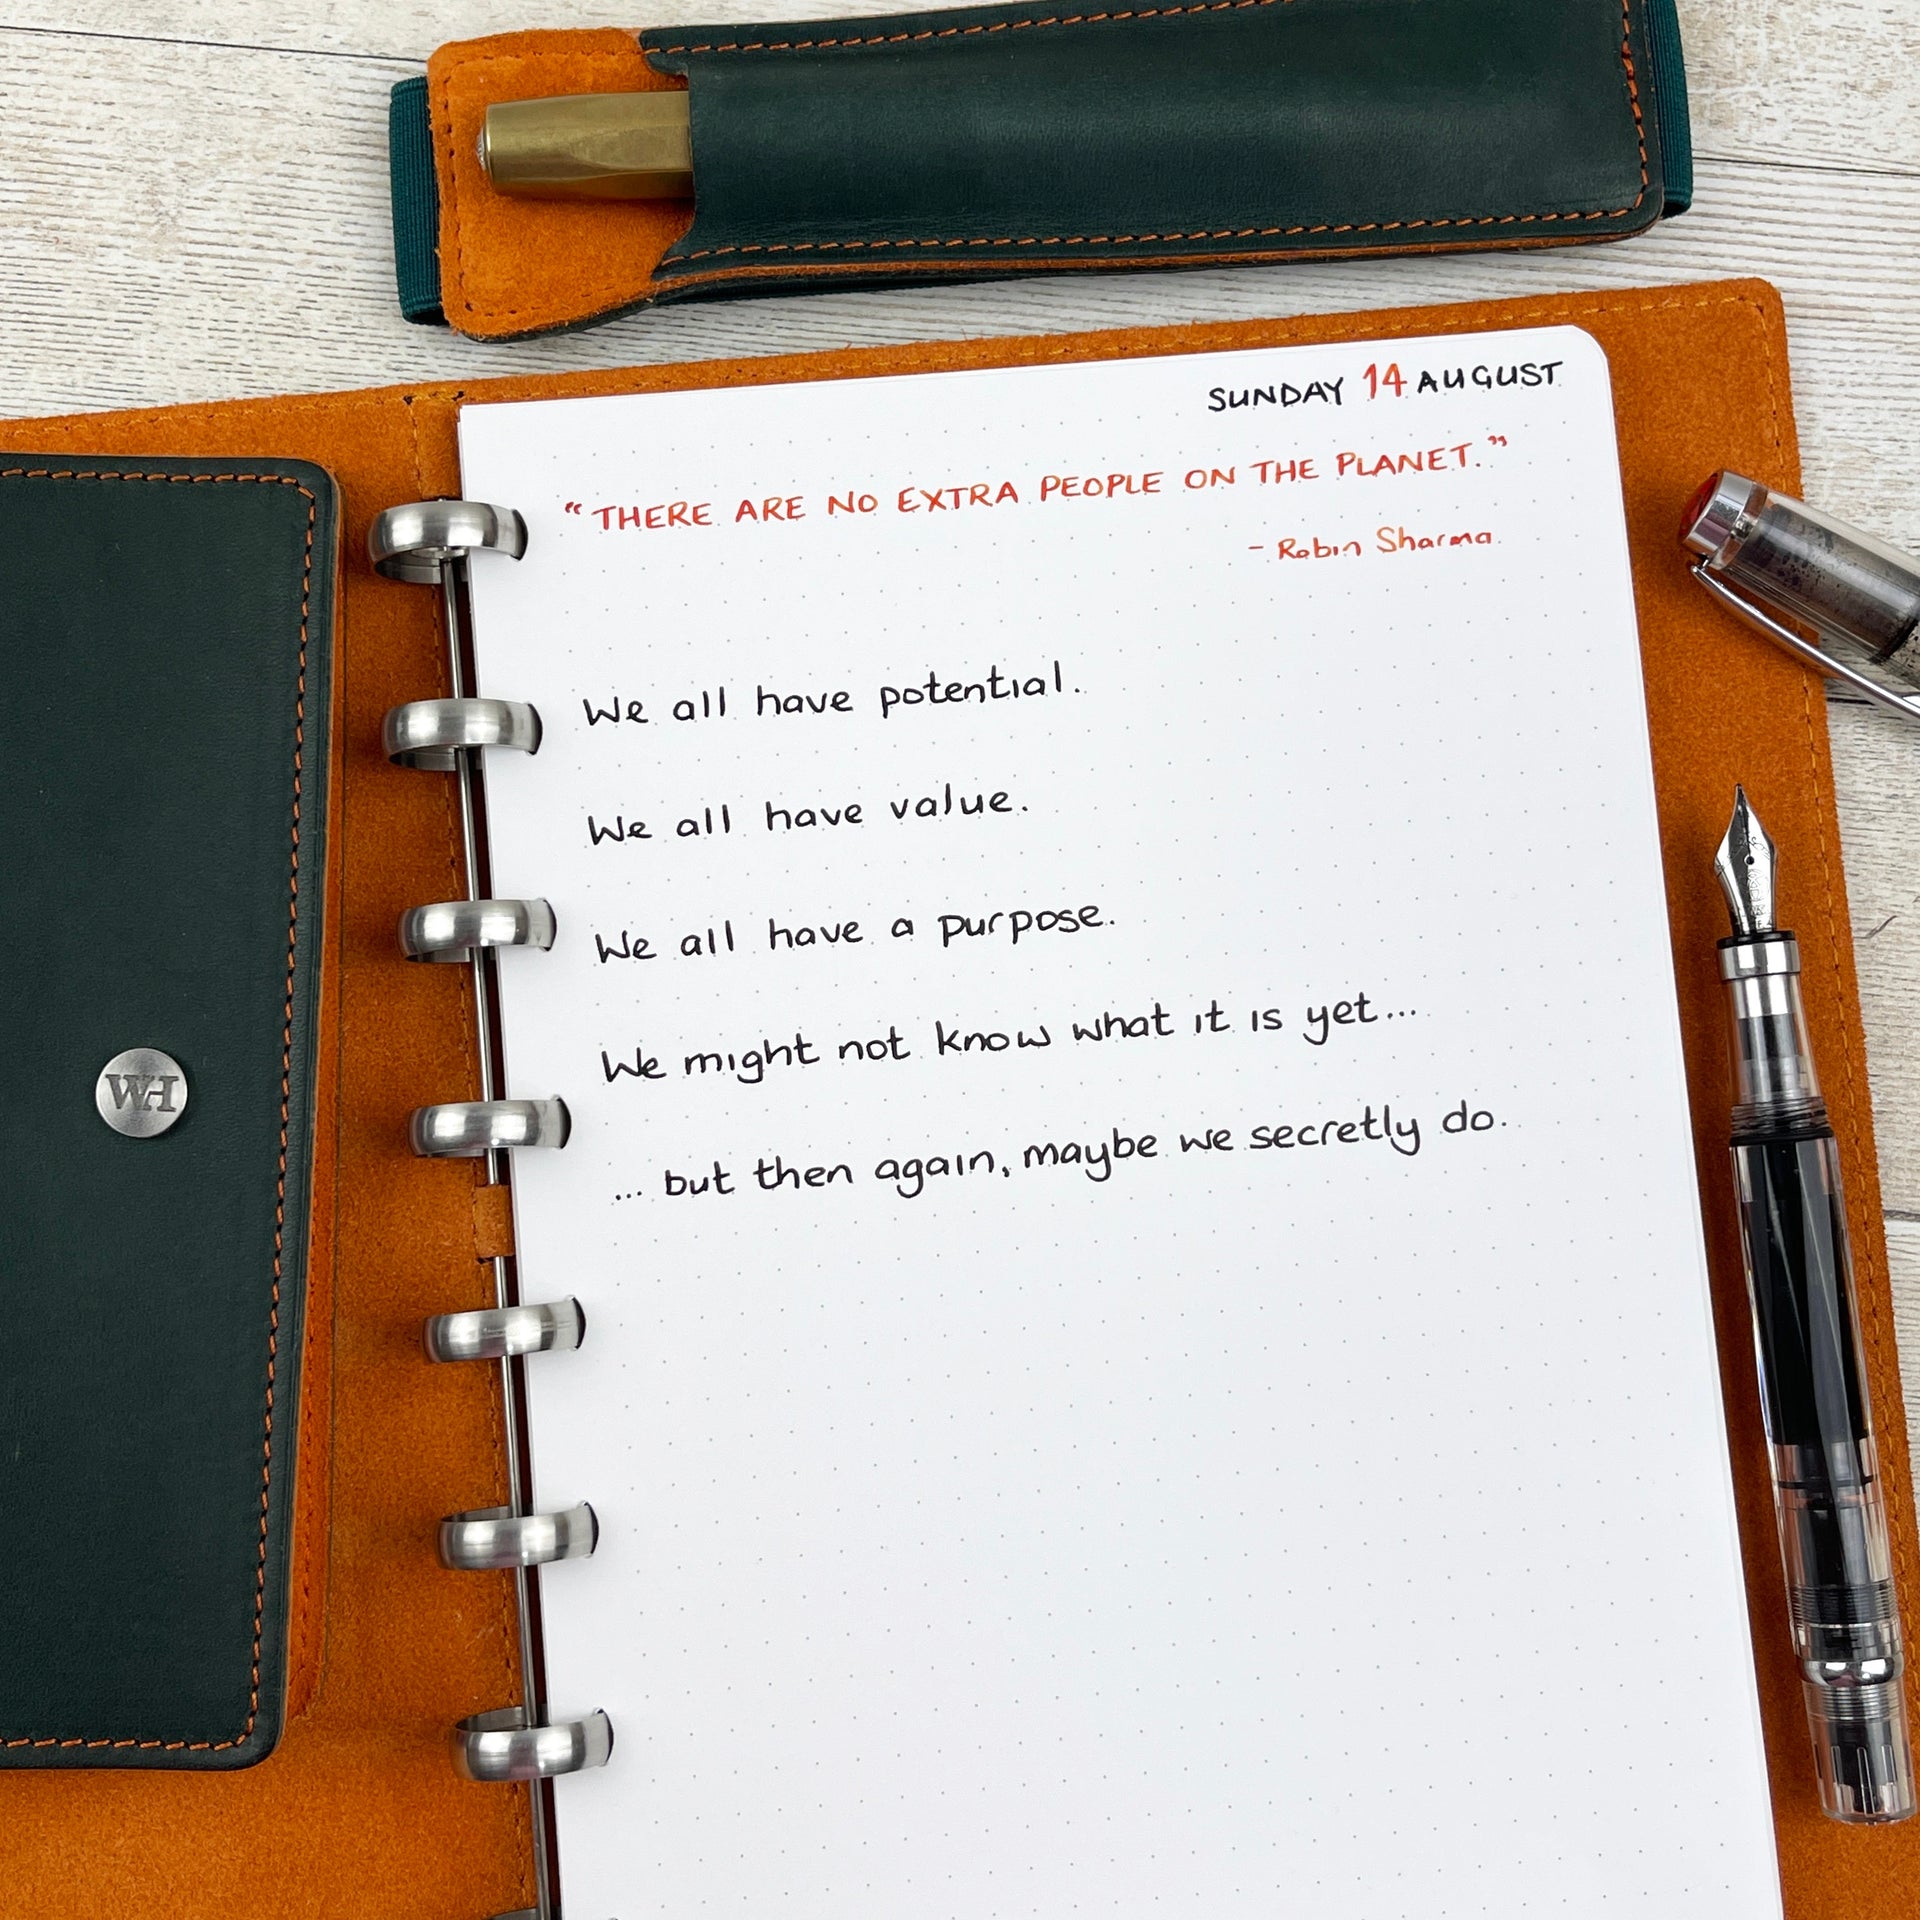 SUNDAY 14 AUGUST
“THERE ARE NO EXTRA PEOPLE ON THE PLANET.”
- Robin Sharma
We all have potential.
We all have value.
We all have a purpose.
We might not know what it is yet...
... but then again, maybe we secretly do.
WH